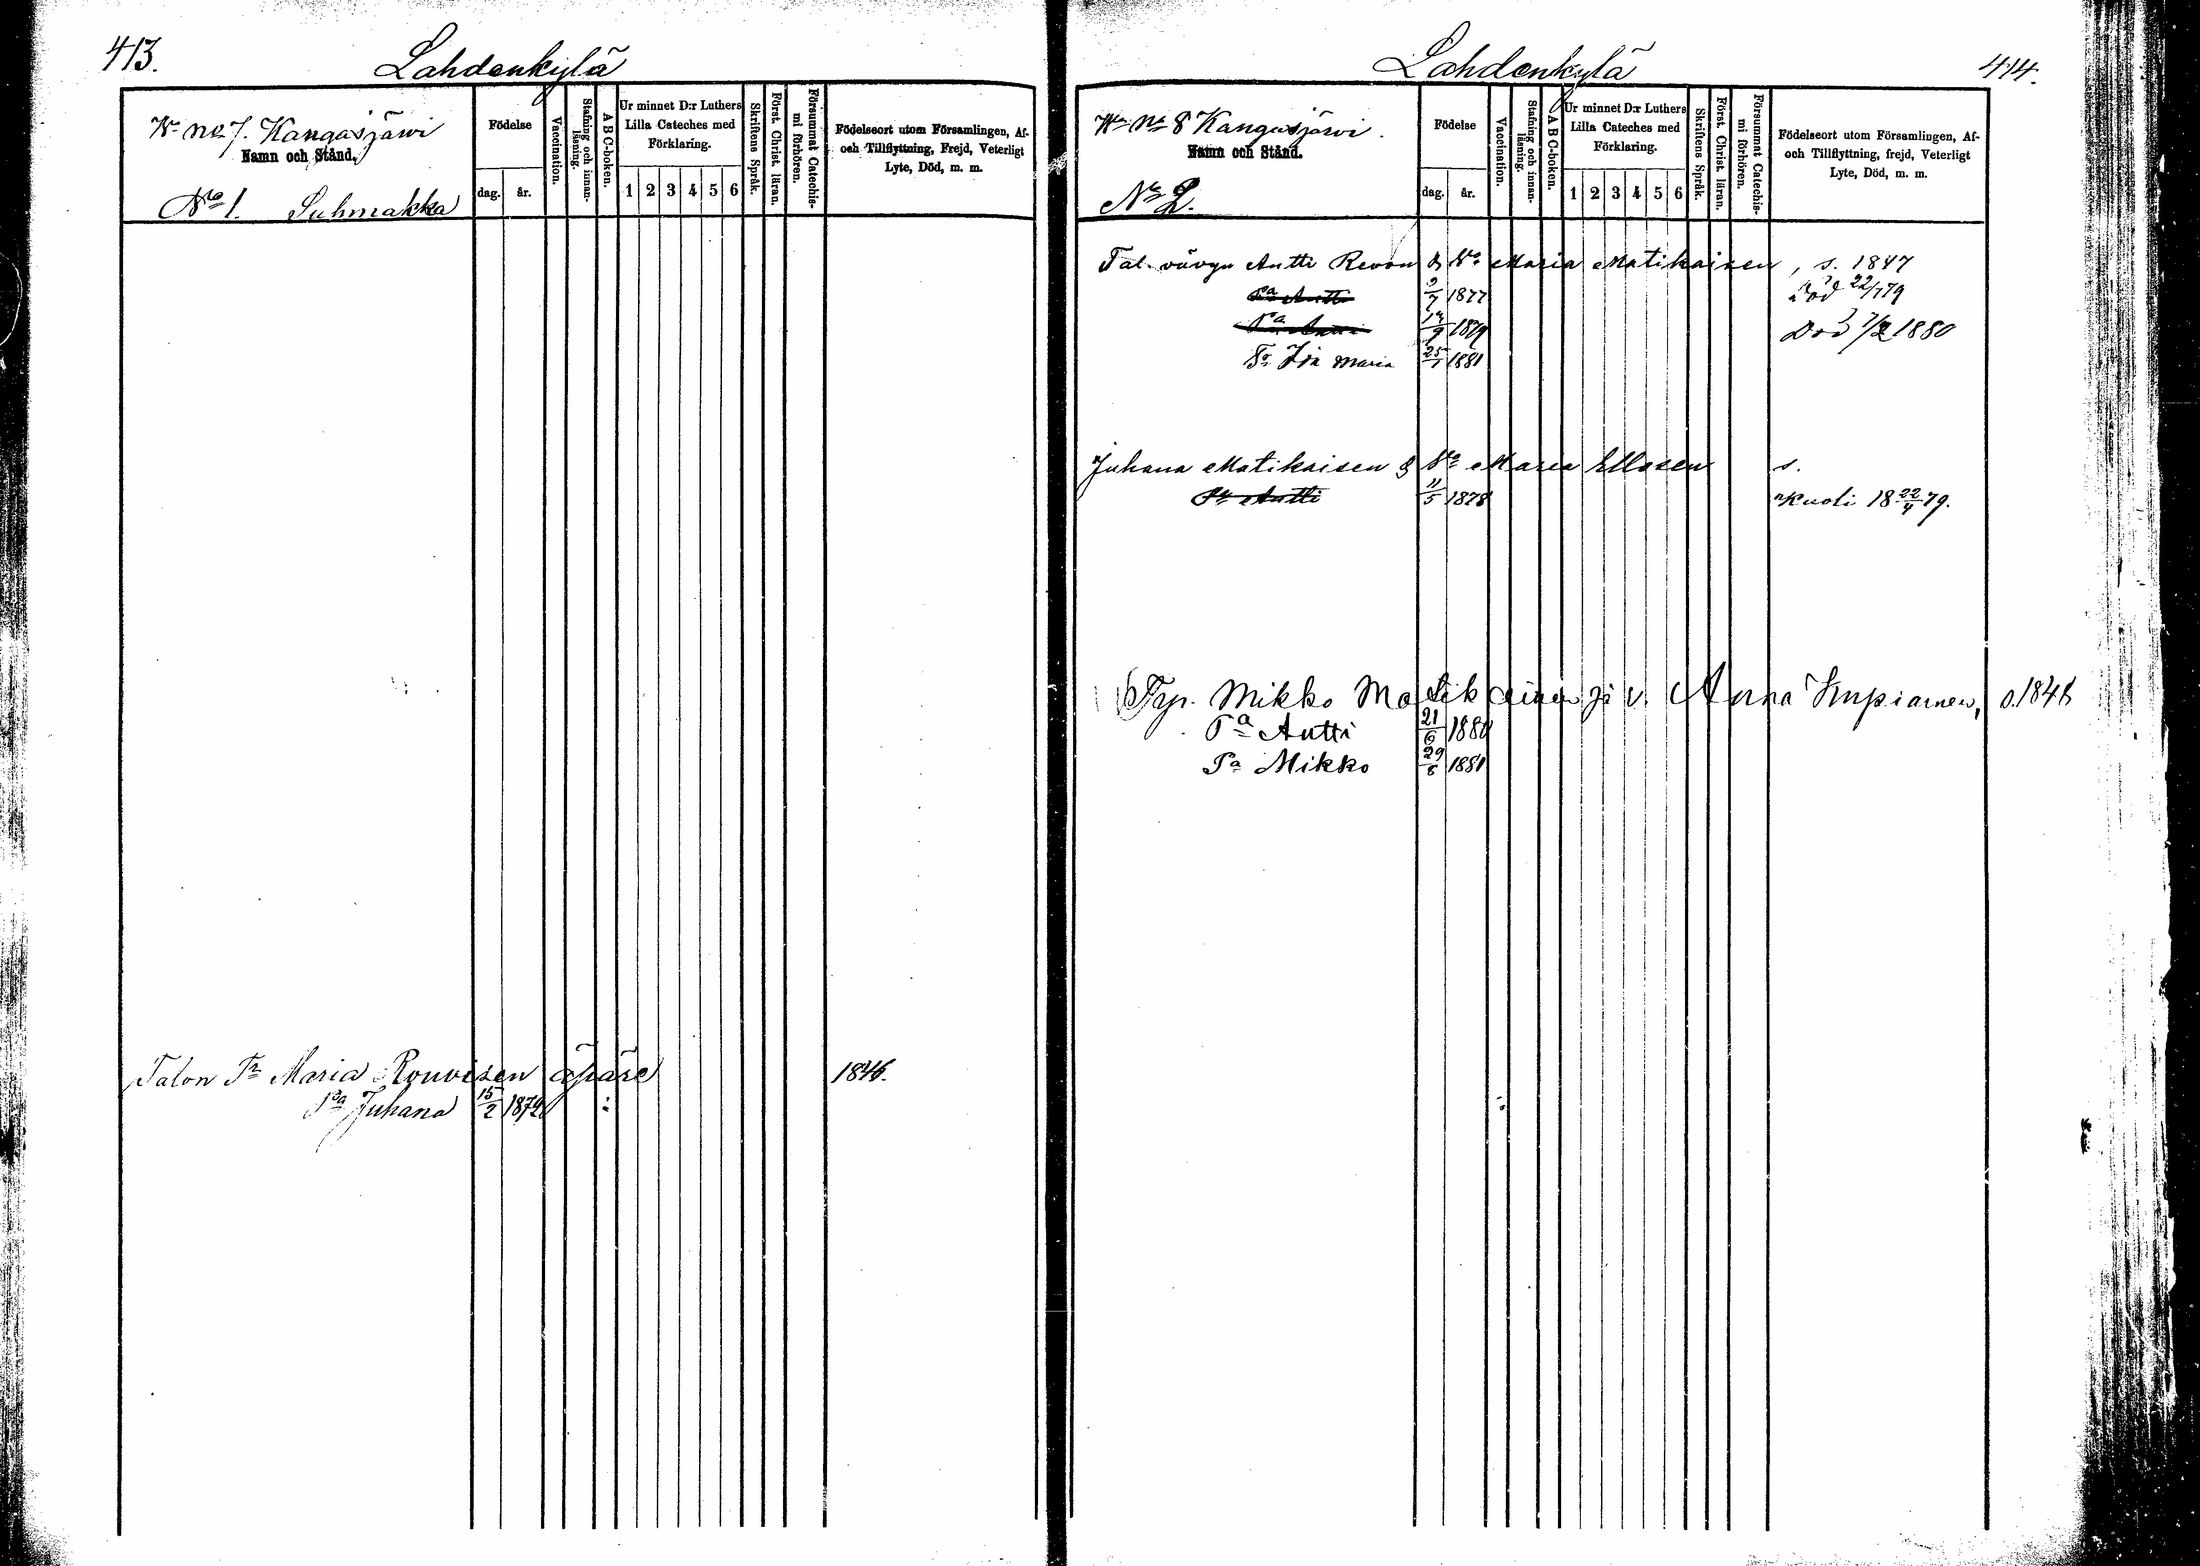 413.
Lahdenkylä
Wn No 7. Kangasjärwi
Namn och Stånd.
No 1. Suhmakka
Födelse
dag. år.
Vaccination.
Stafning och innanläsning.
A B C-boken.
Ur minnet D:r Luthers Lilla Cateches med Förklaring.
1 2 3 4 5 6
Skriftens Språk.
Först. Christ. läran.
Försummat Catechismi förhören.
Födelseort utom Församlingen, Af- och Tillflyttning, Frejd, Veterligt Lyte, Död, m. m.
Talon Tr Maria Rouvisen äpäre 1846.
Pa Juhana 15/2 1872
Lahdenkylä
414.
Wn No 8 Kangasjärvi.
Namn och Stånd.
No 2.
Födelse
dag. år.
Vaccination.
Stafning och innanläsning.
A B C-boken.
Ur minnet D:r Luthers Lilla Cateches med Förklaring.
1 2 3 4 5 6
Skriftens Språk.
Först. Christ. läran.
Försummat Catechismi förhören.
Födelseort utom Församlingen, Af- och Tillflyttning, frejd, Veterligt Lyte, Död, m. m.
Tal. vävyn Antti Revon & Vo Maria Matikaisen, s. 1847
Pa Antti 9/7 1877 död 22/1 79
Pa Antti 1879 Död 1880
Tr Iia Maria 25/1 1881
Juhana Matikaisen & Vo Maria Ellosen s.
Pa Antti 11/5 1878 Kuoli 18 22/4 79.
Typ. Mikko Matikainen ja v. Anna Impiainen, s. 1848
Pa Antti 21/6 1880
Pa Mikko 29/8 1881